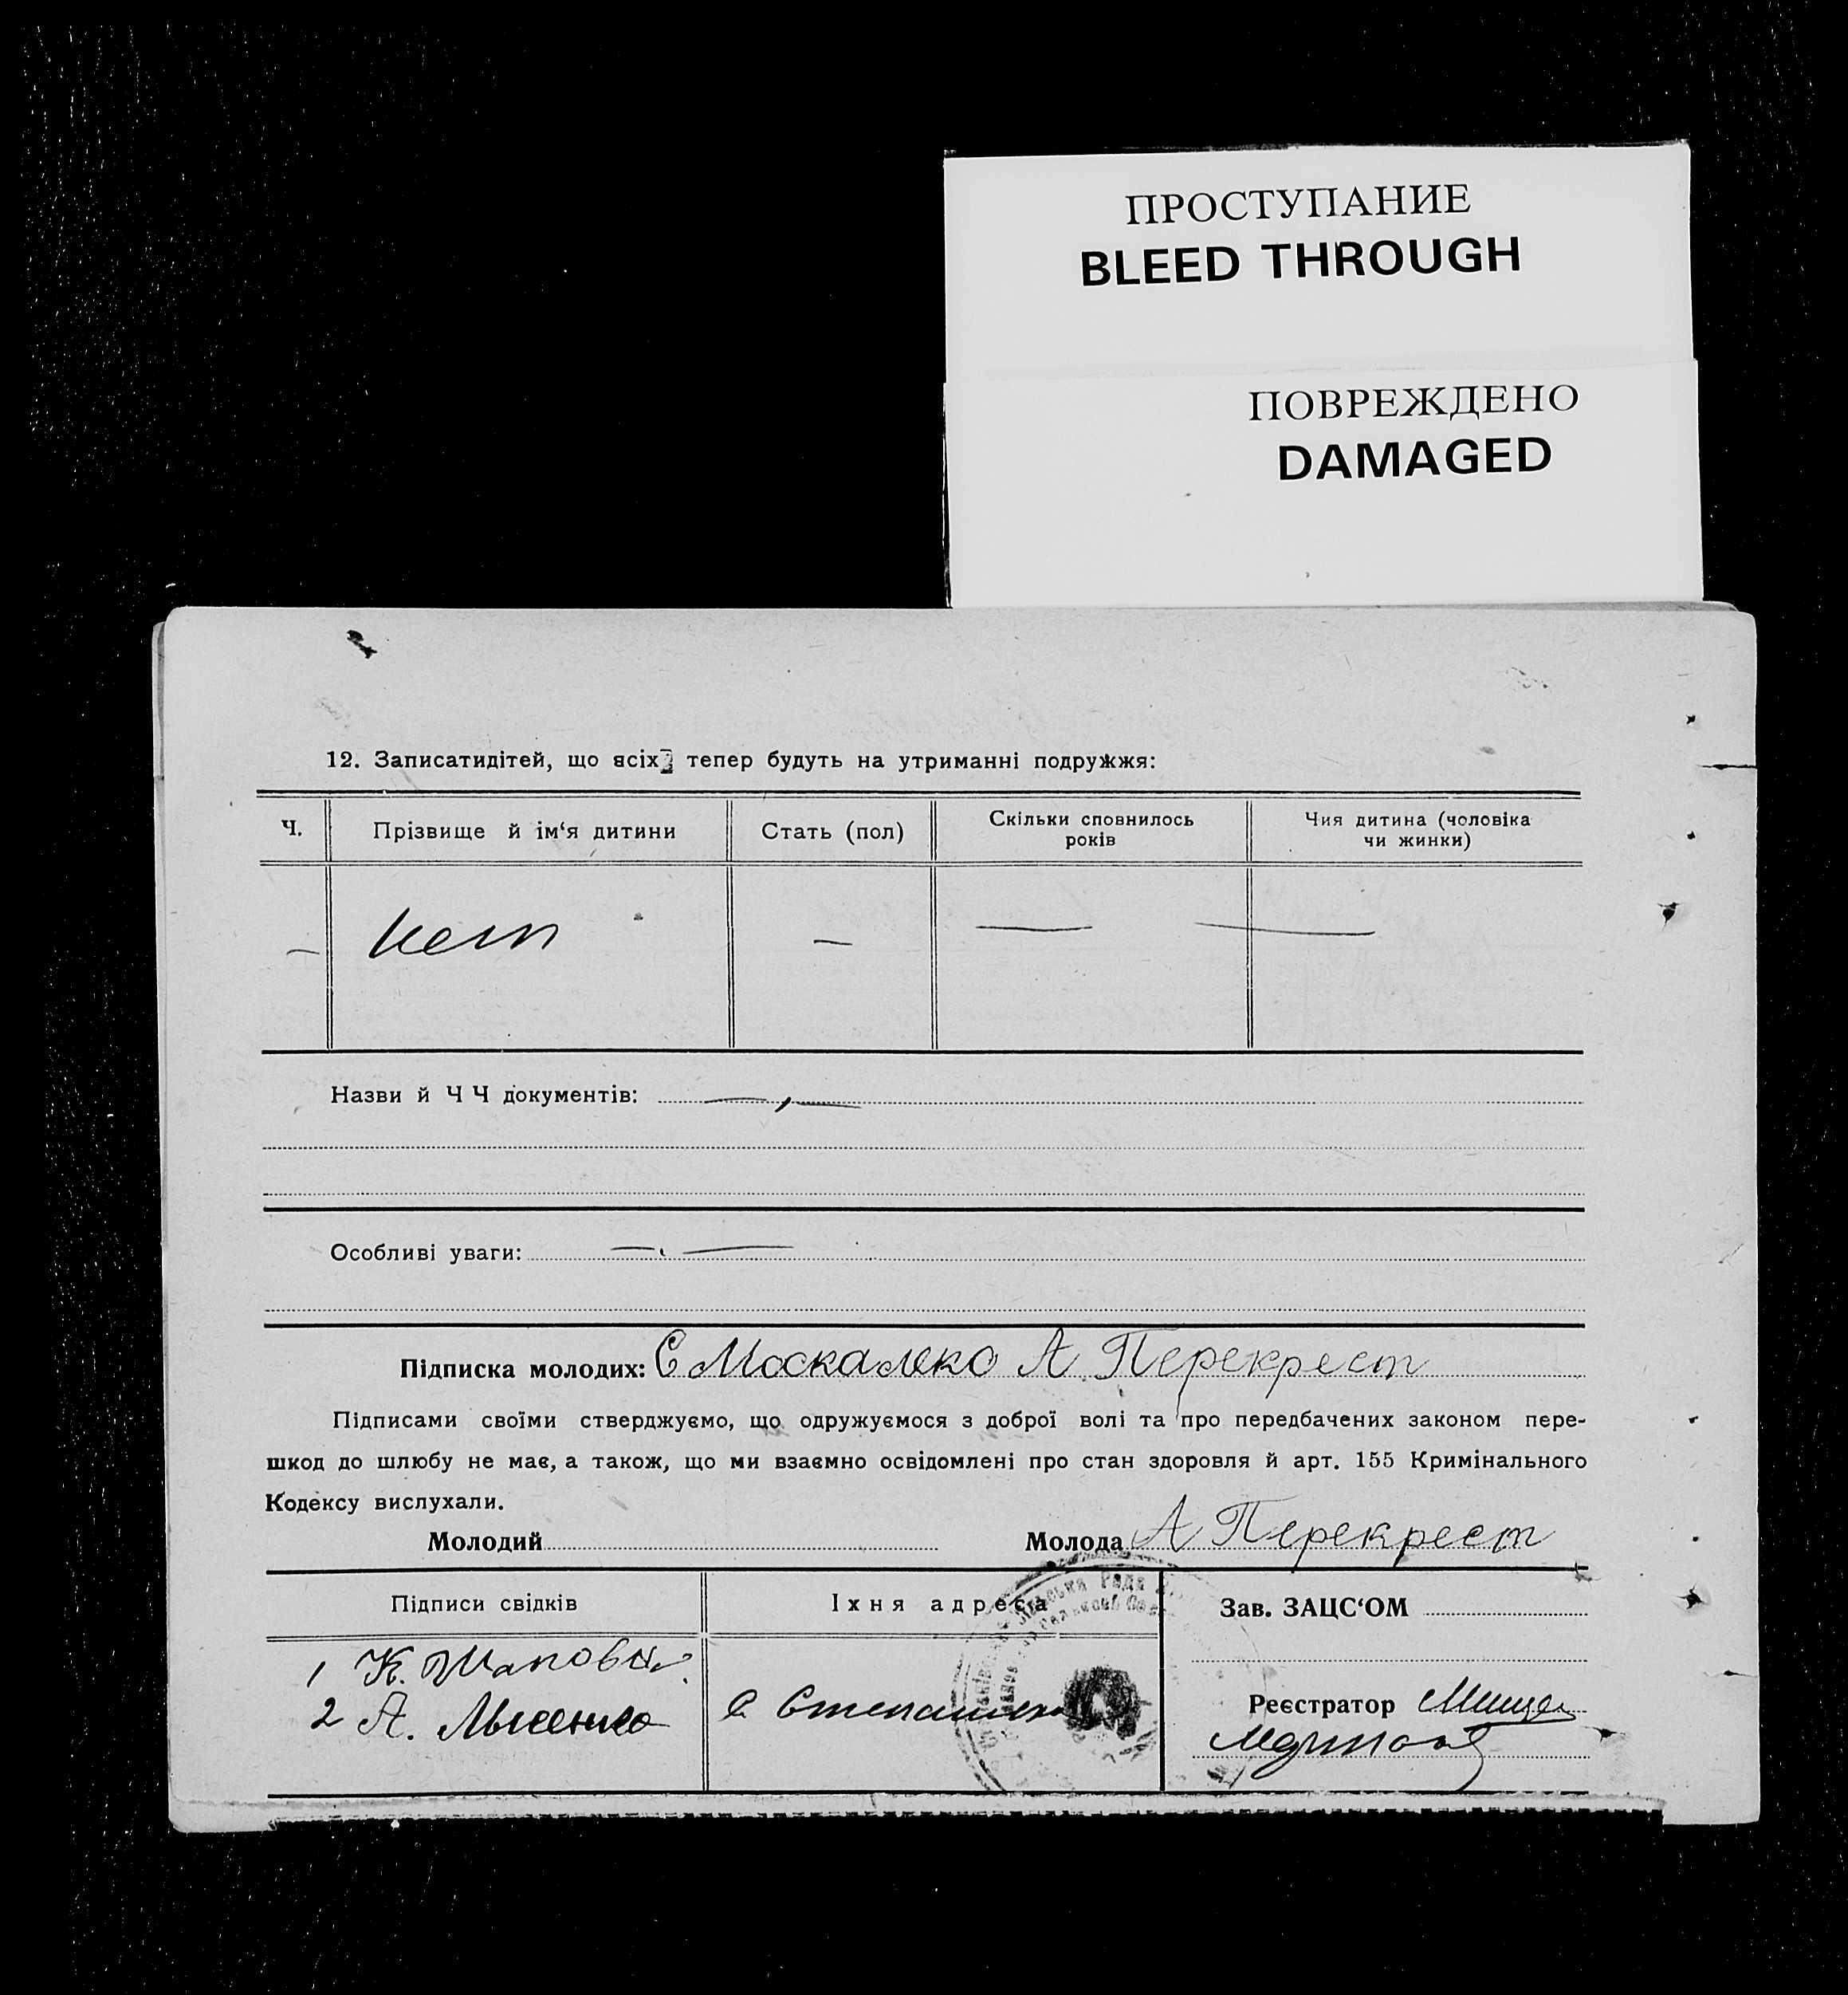 ПРОСТУПАНИЕ
BLEED THROUGH
ПОВРЕЖДЕНО
DAMAGED
12. Записатидітей, що всіх тепер будуть на утриманні подружжя:
Ч. Прізвище й ім‘я дитини Стать (пол) Скільки сповнилось років Чия дитина (чоловіка чи жинки)
— нет — — —
Назви й Ч Ч документів: —,—
Особливі уваги:
Підписка молодих: С Москаленко А Перекрест
Підписами своїми стверджуємо, що одружуємося з доброї волі та про передбачених законом пере-
шкод до шлюбу не має, а також, що ми взаємно освідомлені про стан здоровля й арт. 155 Кримінального
Кодексу вислухали.
Молодий Молода А Перекрест
Підписи свідків Їхня адреса Зав. ЗАЦС‘ОМ
1 К.
2 А. Лысенко с Реєстратор